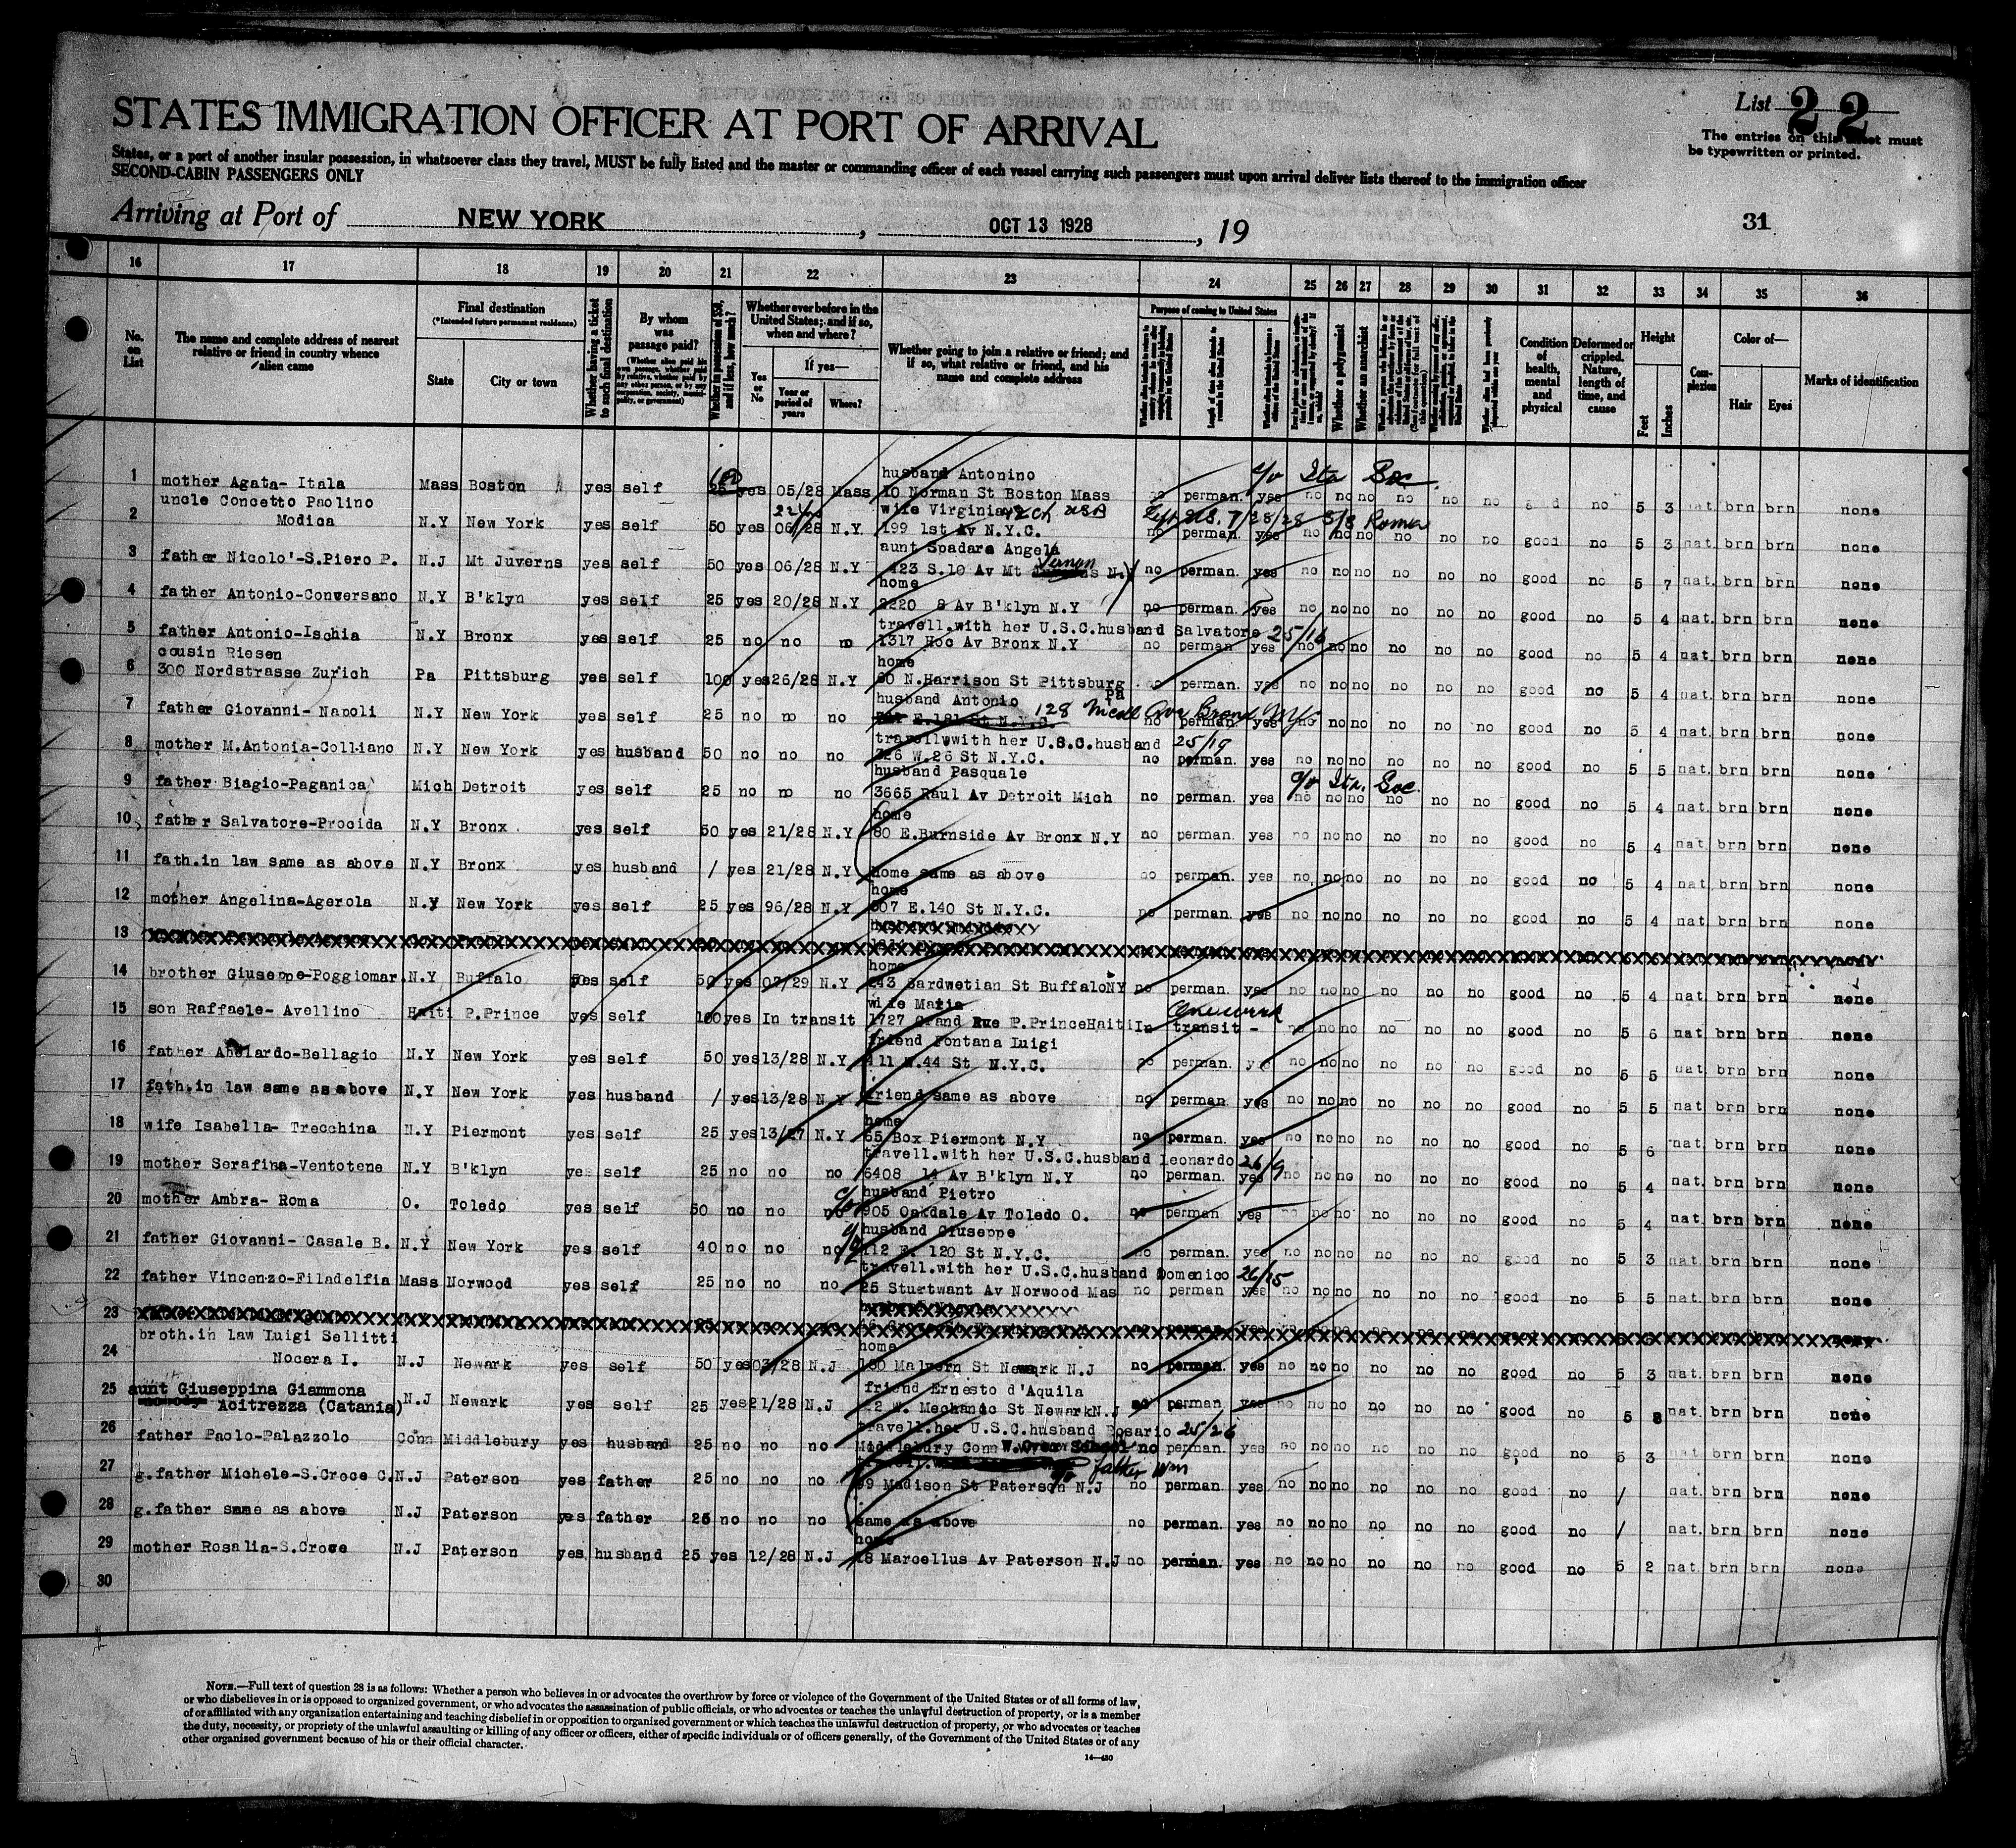 List 22
STATES IMMIGRATION OFFICER AT PORT OF ARRIVAL
The entries on this sheet must
be typewritten or printed.
States, or a port of another insular possession, in whatsoever class they travel, MUST be fully listed and the master or commanding officer of each vessel carrying such passengers must upon arrival deliver lists thereof to the immigration officer
SECOND-CABIN PASSENGERS ONLY
Arriving at Port of NEW YORK , OCT 13 1928 , 19
31
16 17 18 19 20 21 22 23 24 25 26 27 28 29 30 31 32 33 34 35 36
No. on List
The name and complete address of nearest relative or friend in country whence alien came
Final destination
(*Intended future permanent residence)
State
City or town
Whether having a ticket to such final destination
By whom was passage paid?
Whether in possession of $50, and if less, how much?
Whether ever before in the United States; and if so, when and where?
Yes or No
If yes—
Year or period of years
Where?
Whether going to join a relative or friend; and if so, what relative or friend, and his name and complete address
Purpose of coming to United States
Whether a polygamist
Whether an anarchist
Condition of health, mental and physical
Deformed or crippled. Nature, length of time, and cause
Height
Feet
Inches
Complexion
Color of—
Hair
Eyes
Marks of identification
husband Antonino c/o Ita Soc.
1 mother Agata- Itala Mass Boston yes self 25 yes 05/28 Mass 10 Norman St Boston Mass no perman. yes no no no no no no good no 5 3 nat. brn brn none
uncle Concetto Paolino wife Virginia
2 Modica N.Y New York yes self 50 yes 06/28 N.Y. 199 1st Av N.Y.C. no perman. yes no no no no no no good no 5 3 nat. brn brn none
aunt Spadara Angela
3 father Nicolo'-S.Piero P. N.J Mt Juverns yes self 50 yes 06/28 N.Y 423 S.10 Av Mt Vernon N.Y no perman. yes no no no no no no good no 5 7 nat. brn brn none
home
4 father Antonio-Conversano N.Y B'klyn yes self 25 yes 20/28 N.Y 2220 8 Av B'klyn N.Y no perman. yes no no no no no no good no 5 4 nat. brn brn none
travell.with her U.S.C.husband Salvatore 25/16
5 father Antonio-Ischia N.Y Bronx yes self 25 no no no 1317 Hoc Av Bronx N.Y no perman yes no no no no no no good no 5 4 nat. brn brn none
cousin Riesen home
6 300 Nordstrasse Zurich Pa Pittsburg yes self 100 yes 26/28 N.Y 60 N.Harrison St Pittsburg Pa no perman. yes no no no no no no good no 5 4 nat. brn brn none
husband Antonio 128 Ave Bronx
7 father Giovanni- Napoli N.Y New York yes self 25 no no no E.181 St N.Y.C. no perman yes no no no no no no good no 5 4 nat. brn brn none
travell.with her U.S.C.husband 25/19
8 mother M.Antonia-Colliano N.Y New York yes husband 50 no no no 326 W.26 St N.Y.C. no perman. yes no no no no no no good no 5 5 nat. brn brn none
husband Pasquale c/o Ita. Soc.
9 father Biagio-Paganica Mich Detroit yes self 25 no no no 3665 Raul Av Detroit Mich no perman. yes no no no no no no good no 5 4 nat. brn brn none
home
10 father Salvatore-Procida N.Y Bronx yes self 50 yes 21/28 N.Y 80 E.Burnside Av Bronx N.Y no perman. yes no no no no no no good no 5 4 nat. brn brn none
11 fath.in law same as above N.Y Bronx yes husband / yes 21/28 N.Y home same as above no perman. yes no no no no no no good no 5 4 nat. brn brn none
home
12 mother Angelina-Agerola N.Y New York yes self 25 yes 96/28 N.Y 507 E.140 St N.Y.C. no perman. yes no no no no no no good no 5 4 nat brn brn none
13
home
14 brother Giuseppe-Poggiomar. N.Y Buffalo yes self 50 yes 07/29 N.Y 243 Sardwetian St BuffaloNY no perman. yes no no no no no no good no 5 4 nat. brn brn none
wife Maria
15 son Raffaele- Avellino Haiti P.Prince yes self 100 yes In transit 1727 Grand Rue P.PrinceHaiti In transit - no no no no no no good no 5 6 nat. brn brn none
friend Fontana Luigi
16 father Abelardo-Bellagio N.Y New York yes self 50 yes 13/28 N.Y 411 W.44 St N.Y.C. no perman. yes no no no no no no good no 5 5 nat brn brn none
17 fath.in law same as above N.Y New York yes husband / yes 13/28 N.Y friend same as above no perman. yes no no no no no no good no 5 5 nat brn brn none
home
18 wife Isabella- Trecchina N.Y Piermont yes self 25 yes 13/27 N.Y 65 Box Piermont N.Y no perman. yes no no no no no no good no 5 6 nat. brn brn none
travell.with her U.S.C.husband Leonardo 26/9
19 mother Serafina-Ventotene N.Y B'klyn yes self 25 no no no 6408 14 Av B'klyn N.Y no perman. yes no no no no no no good no 5 4 nat. brn brn none
husband Pietro
20 mother Ambra- Roma O. Toledo yes self 50 no no no 905 Oakdale Av Toledo O. no perman yes no no no no no no good no 5 4 nat. brn brn none
husband Giuseppe
21 father Giovanni- Casale B. N.Y New York yes self 40 no no no 112 E. 120 St N.Y.C. no perman. yes no no no no no no good no 5 3 nat brn brn none
travell.with her U.S.C.husband Domenico 26/15
22 father Vincenzo-Filadelfia Mass Norwood yes self 25 no no no 25 Sturtwant Av Norwood Mas no perman yes no no no no no no good no 5 5 nat. brn brn none
23
broth.in law Luigi Sellitti home
24 Nocera I. N.J Newark yes self 50 yes 03/28 N.J 150 Malvern St Newark N.J no perman. yes no no no no no no good no 5 3 nat. brn brn none
25 aunt Giuseppina Giammona friend Ernesto d'Aquila
Acitrezza (Catania) N.J Newark yes self 25 yes 21/28 N.J 12 W. Mechanic St NewarkN.J no perman yes no no no no no no good no 5 8 nat. brn brn none
travell.her U.S.C.husband Rosario 25/26
26 father Paolo-Palazzolo Conn Middlebury yes husband 25 no no no Middlebury Conn no perman. yes no no no no no no good no 5 3 nat brn brn none
father
27 g.father Michele-S.Croce C. N.J Paterson yes father 25 no no no 99 Madison St Paterson N.J no perman. yes no no no no no no good no / nat. brn brn none
28 g.father same as above N.J Paterson yes father 25 no no no same as above no perman. yes no no no no no no good no / nat. brn brn none
home
29 mother Rosalia-S.Croce N.J Paterson yes husband 25 yes 12/28 N.J 18 Marcellus Av Paterson N.J no perman. yes no no no no no no good no 5 2 nat. brn brn none
30
NOTE.—Full text of question 28 is as follows: Whether a person who believes in or advocates the overthrow by force or violence of the Government of the United States or of all forms of law,
or who disbelieves in or is opposed to organized government, or who advocates the assassination of public officials, or who advocates or teaches the unlawful destruction of property, or is a member
of or affiliated with any organization entertaining and teaching disbelief in or opposition to organized government or which teaches the unlawful destruction of property, or who advocates or teaches
the duty, necessity, or propriety of the unlawful assaulting or killing of any officer or officers, either of specific individuals or of officers generally, of the Government of the United States or of any
other organized government because of his or their official character.
14—430